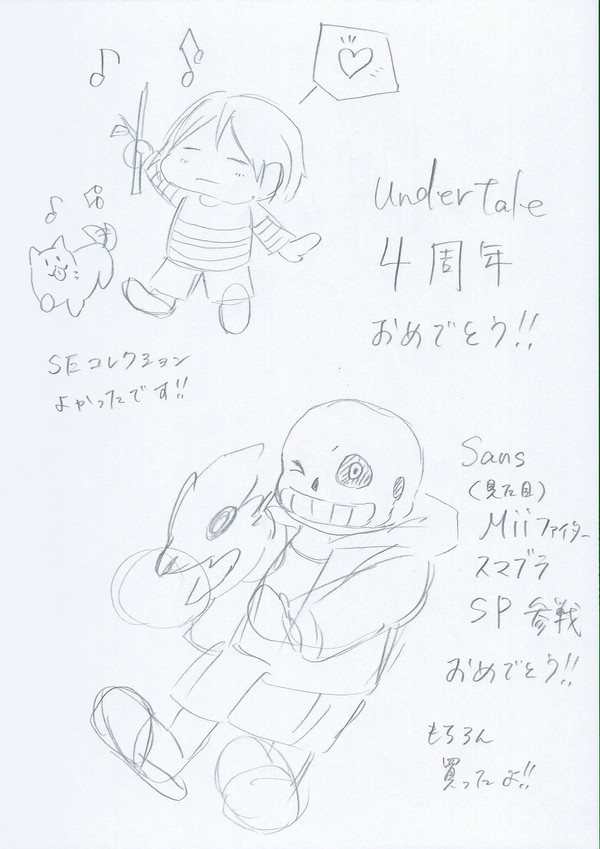 Undertale
4周年
おめでとう!!
SEコレクション
よかったです!!
Sans
(見た目)
Miiファイター
スマブラ
SP 参戦
おめでとう!!
もちろん
買ったよ!!